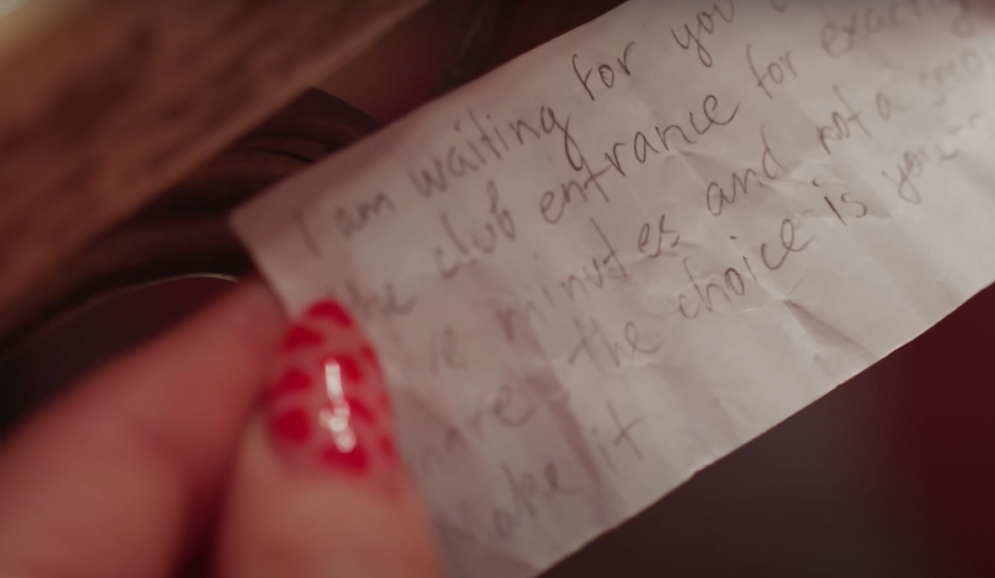 I am waiting for you
the club entrance for exactly
minutes and not a
the choice is
it